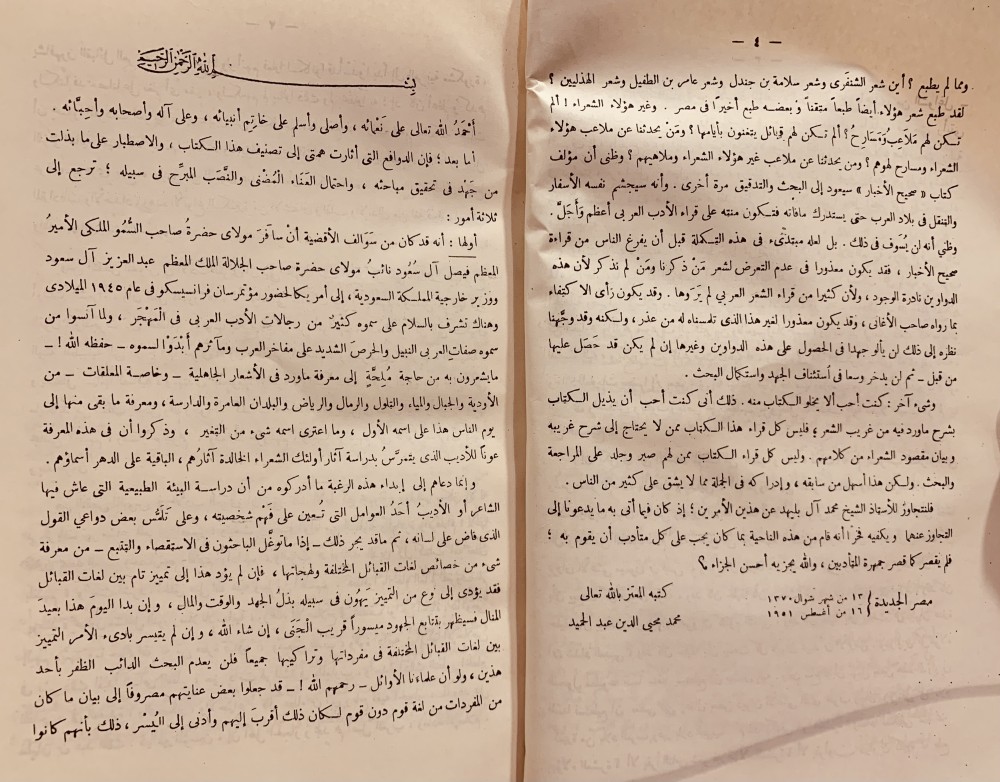 — ٤ —
ومما لم يطبع ؟ أين شعر الشنفَرى وشعر سلامة بن جندل وشعر عامر بن الطفيل وشعر الهذليين ؟
لقد طبع شعر هؤلاء أيضاً طبعاً متقناً وبعضه طبع أخيراً فى مصر . وغير هؤلاء الشعراء ! ألم
تكن لهم مَلَاعِبُ وَمَسَارِحُ ؟ ألم تكن لهم قيائل يتغنون بأيامها ؟ ومَنْ يحدثنا عن ملاعب هؤلاء
الشعراء ومسارح لهوهم ؟ ومن يحدثنا عن ملاعب غير هؤلاء الشعراء وملاهيهم ؟ وظنى أن مؤلف
كتاب « صحيح الأخبار » سيعود إلى البحث والتدقيق مرة أخرى . وأنه سيجشم نفسه الأسفار
والتنقل فى بلاد العرب حتى يستدرك مافاته فتكون منته على قراء الأدب العربى أعظم وَأَجَلَّ .
وظني أنه لن يُسَوف فى ذلك . بل لعله مبتدئء فى هذه التكملة قبل أن يفرغ الناس من قراءة
صحيح الأخبار ، فقد يكون معذورا فى عدم التعرض لشعر مَنْ ذكرنا ومَنْ لم نذكر لأن هذه
الدواوين نادرة الوجود ، ولأن كثيرا من قراء الشعر العربي لم يَرَوها . وقد يكون رأى الاكتفاء
بما رواه صاحب الأغانى ، وقد يكون معذورا لغير هذا الذى تلمسناه له من عذر ، ولكنه وقد وجَّهنا
نظره إلى ذلك لن يألو جهدا فى الحصول على هذه الدواوين وغيرها إن لم يكن قد حَصَل عليها
من قبل ــ ثم لن يدخر وسعا فى استئناف الجهد واستكمال البحث .
وشىء آخر : كنت أحب ألا يخلو الكتاب منه . ذلك أنى كنت أحب أن يذيل الكتاب
بشرح ماورد فيه من غريب الشعر ؛ فليس كل قراء هذا الكتاب ممن لا يحتاج إلى شرح غريبه
وبيان مقصود الشعراء من كلامهم . وليس كل قراء الكتاب ممن لهم صبر وجلد على المراجعة
والبحث . ولكن هذا أسهل من سابقه ، وإدراكه فى الجملة مما لا يشق على كثير من الناس .
فلنتجاوز للأستاذ الشيخ محمد آل بليهد عن هذين الأمرين ؛ إذ كان فيما أتى به ما يدعونا إلى
التجاوز عنهما ويكفيه فخراً أنه قام من هذه الناحية بما كان يجب على كل متأدب أن يقوم به ؛
فلم يقصر كما قصر جمهرة المتأدبين ، والله يجزيه أحسن الجزاء ؟
كتبه المعتز بالله تعالى
مصر الجديدة { ١٣ من شهر شوال ١٣٧٠
١٦ من أغسطس ١٩٥١
محمد محيى الدين عبد الحميد
بسم الله الرحمن الرحيم
أحْمَدُ الله تعالى على نَعْمَائه ، وأصلى وأسلم على خاتِم أنبيائه ، وعلى آله وأصحابه وأحِبَّائه .
أما بعد ؛ فإن الدوافع التى أثارت همتى إلى تصنيف هذا الكتاب ، والاصطبار على ما بذلت
من جَهْد فى تحقيق مباحثه ، واحتمال العَنَاء المُضْنى والنَّصَب المبرِّح فى سبيله ؛ ترجع إلى
ثلاثة أمور :
أولها : أنه قد كان من سَوَالف الأقضية أنْ سافَرَ مولاى حضرةُ صاحب السُّمُو الملكى الأميرُ
المعظم فيصل آل سُعُود نائبُ مولاى حضرة صاحب الجلالة الملك المعظم عبد العزيز آل سعود
ووزير خارجية المملكة السعودية ، إلى أمريكا لحضور مؤتمر سان فرانسيسكو فى عام ١٩٤٥ الميلادى
وهناك تشرف بالسلام على سموه كثيرٌ من رجالات الأدب العربى فى الْمَهْجَر ، ولما آنسوا من
سموه صفاتِ العربى النبيل والحرصَ الشديد على مفاخر العرب ومآثرهم أبْدَوْا لسموه ــ حفظه الله ! ــ
مايشعرون به من حاجة مُلِحَّةٍ إلى معرفة ماورد فى الأشعار الجاهلية ــ وخاصة المعلقات ــ من
الأودية والجبال والمياه والتلول والرمال والرياض والبلدان العامرة والدارسة ، ومعرفة ما بقى منها إلى
يوم الناس هذا على اسمه الأول ، وما اعترى اسمه شىء من التغير ، وذكروا أن فى هذه المعرفة
عونًا للأديب الذى يتمرَّسُ بدراسة آثار أولئك الشعراء الخالدة آثارُهم ، الباقية على الدهر أسماؤهم .
وإنما دعاهم إلى إبداء هذه الرغبة ما أدركوه من أن دراسة البيئة الطبيعية التى عاش فيها
الشاعر أو الأديبُ أحَدُ العوامل التى تُعين على فَهْم شخصيته ، وعلى تَلَمُّس بعض دواعي القول
الذى فاض على لسانه ، ثم ماقد يجر ذلك ــ إذا ماتوغَّل الباحثون فى الاستقصاء والتتبع ــ من معرفة
شىء من خصائص لغات القبائل المختلفة ولهجاتها ، فإن لم يؤد هذا إلى تمييز تام بين لغات القبائل
فقد يؤدى إلى نوع من التمييز يَهُون فى سبيله بذلُ الجهد والوقت والمال ، وإن بدا اليومَ هذا بعيدَ
المنال فسيظهر بتتابع الجهود ميسوراً قريب الْجَنَى ، إن شاء الله ، وإن لم يتيسر بادىء الأمر التمييز
بين لغات القبائل المختلفة فى مفرداتها وتراكيبها جميعاً فلن يعدم البحث الدائب الظفر بأحد
هذين ، ولو أن علماءنا الأوائل ــ رحمهم الله ! ــ قد جعلوا بعض عنايتهم مصروفًا إلى بيان ما كان
من المفردات من لغة قوم دون قوم لكان ذلك أقربَ إليهم وأدنى إلى اليُسر ، ذلك بأنهم كانوا